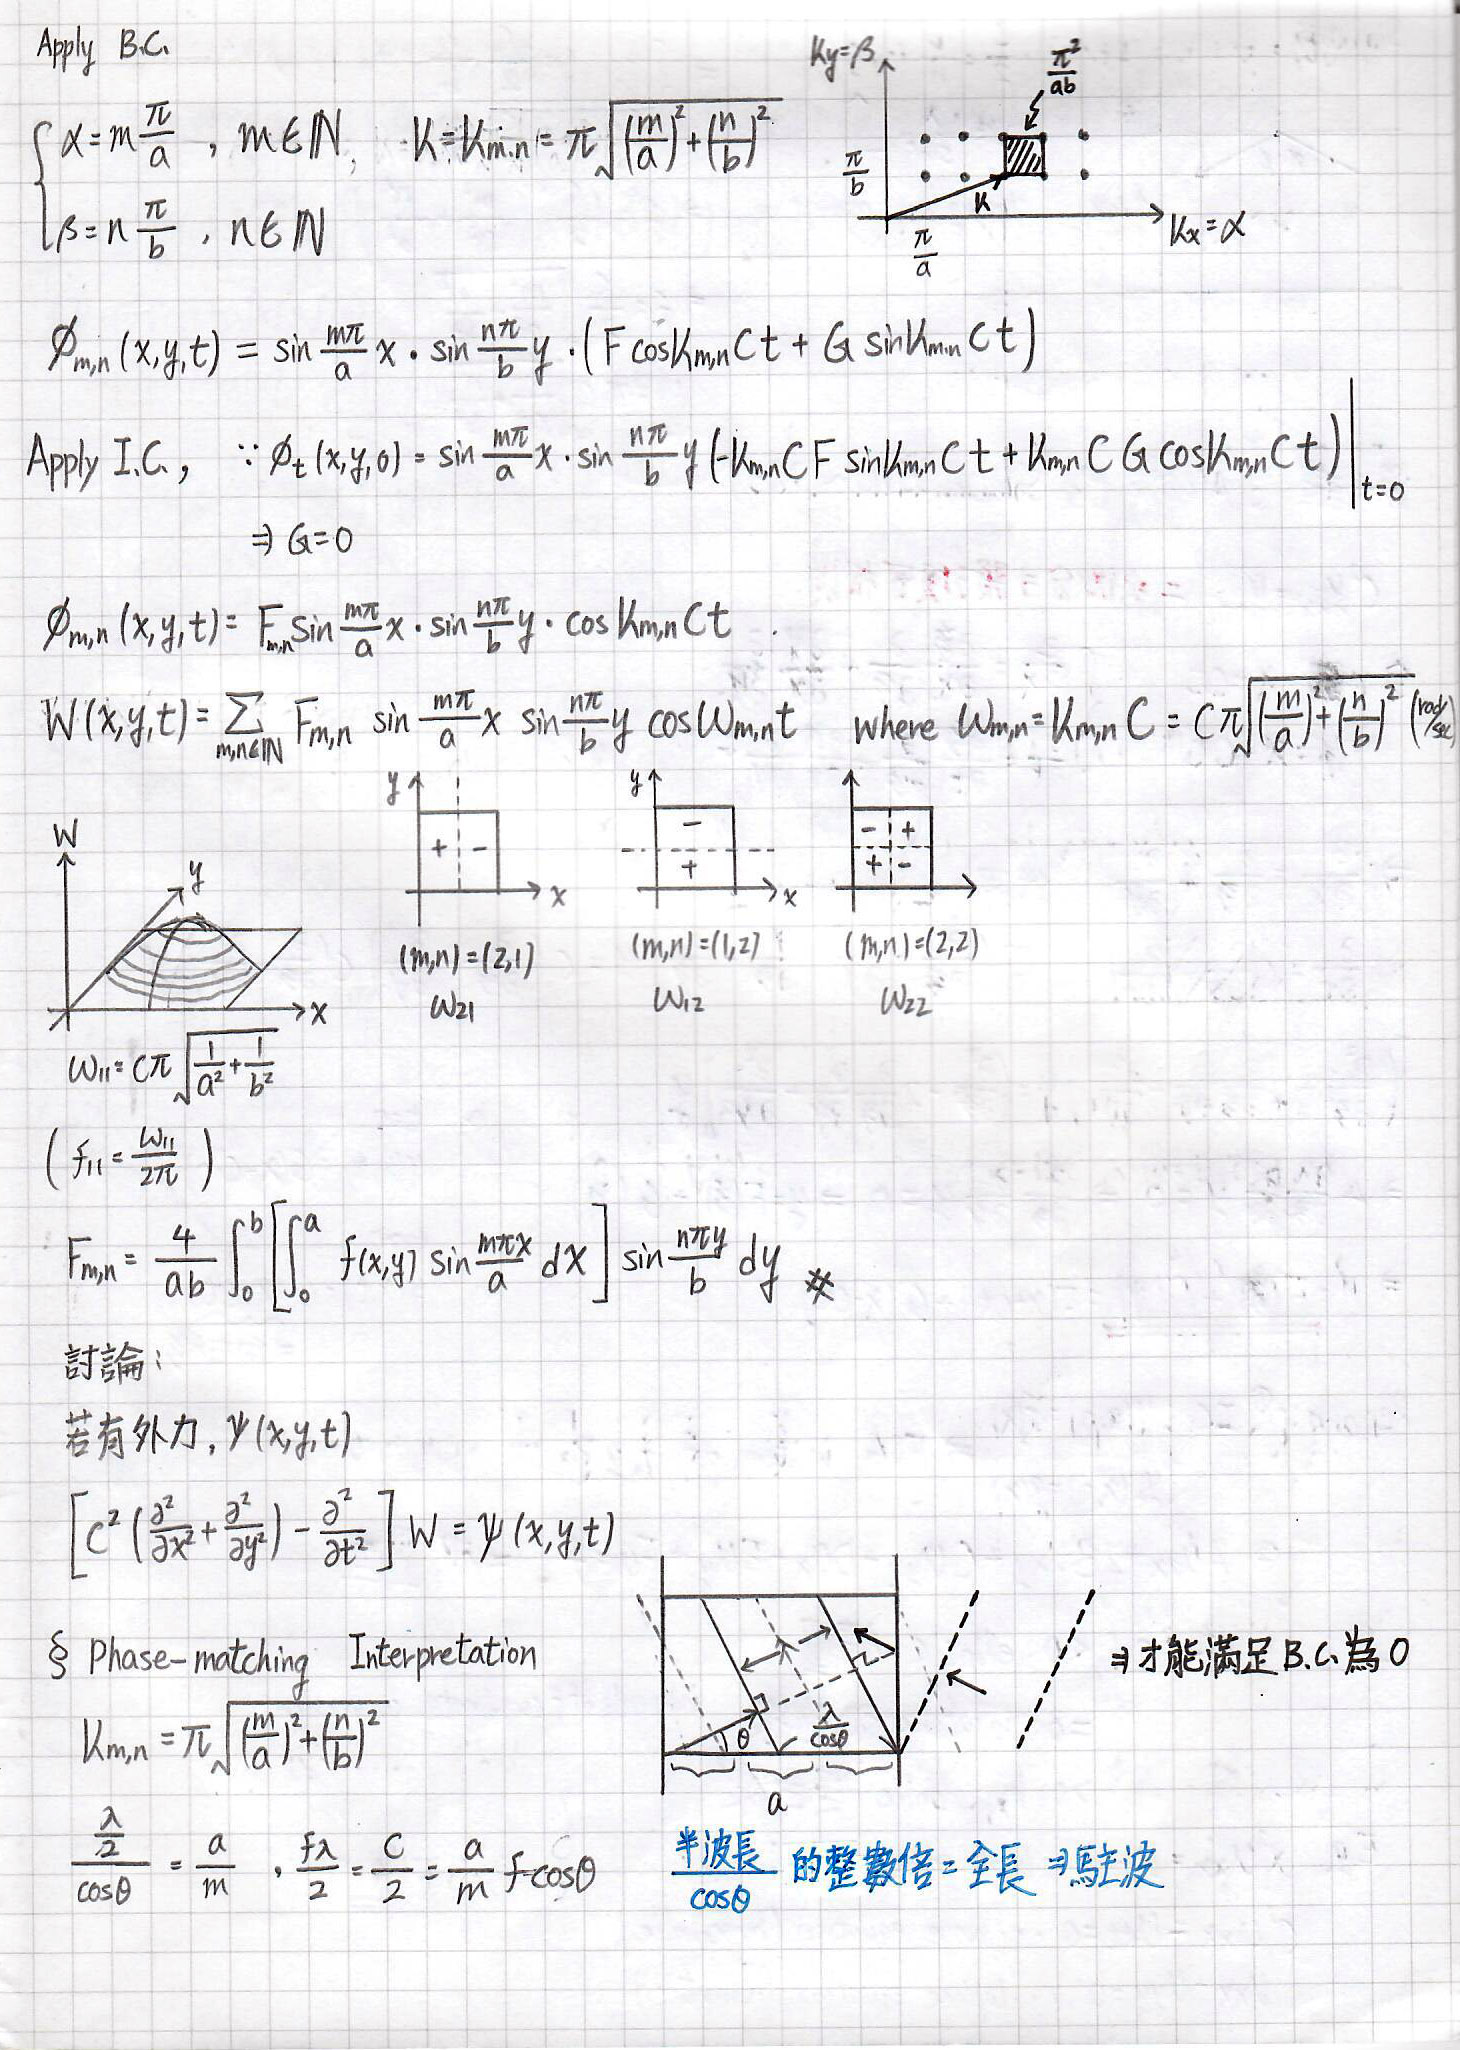 Apply B.C.
Ky=β
π²/ab
{ α = m π/a , m∈ℕ, K=K_{m,n} = π√((m/a)²+(n/b)²)
β = n π/b , n∈ℕ
π/b
K
Kx=α
π/a
Ø_{m,n}(x,y,t) = sin mπ/a x · sin nπ/b y · (F cosK_{m,n}Ct + G sinK_{m,n}Ct)
Apply I.C., ∵ Ø_t(x,y,0) = sin mπ/a x · sin nπ/b y (-K_{m,n}CF sinK_{m,n}Ct + K_{m,n}CG cosK_{m,n}Ct)|_{t=0}
⇒ G=0
Ø_{m,n}(x,y,t) = F_{m,n} sin mπ/a x · sin nπ/b y · cosK_{m,n}Ct
W(x,y,t) = Σ_{m,n∈ℕ} F_{m,n} sin mπ/a x sin nπ/b y cosω_{m,n}t where ω_{m,n} = K_{m,n}C = Cπ√((m/a)²+(n/b)²) (rad/sec)
W
y
x
ω₁₁ = Cπ√(1/a²+1/b²)
(f₁₁ = ω₁₁/2π)
y
+ -
x
(m,n)=(2,1)
ω₂₁
y
-
+
x
(m,n)=(1,2)
ω₁₂
- +
+ -
(m,n)=(2,2)
ω₂₂
F_{m,n} = 4/ab ∫₀^b [∫₀^a f(x,y) sin mπx/a dx] sin nπy/b dy #
討論:
若有外力, ψ(x,y,t)
[C²(∂²/∂x²+∂²/∂y²) - ∂²/∂t²] W = ψ(x,y,t)
§ Phase-matching Interpretation
K_{m,n} = π√((m/a)²+(n/b)²)
θ
λ/cosθ
a
⇒才能滿足B.C.為0
(λ/2)/cosθ = a/m , fλ/2 = C/2 = a/m f cosθ
半波長/cosθ 的整數倍=全長 ⇒駐波